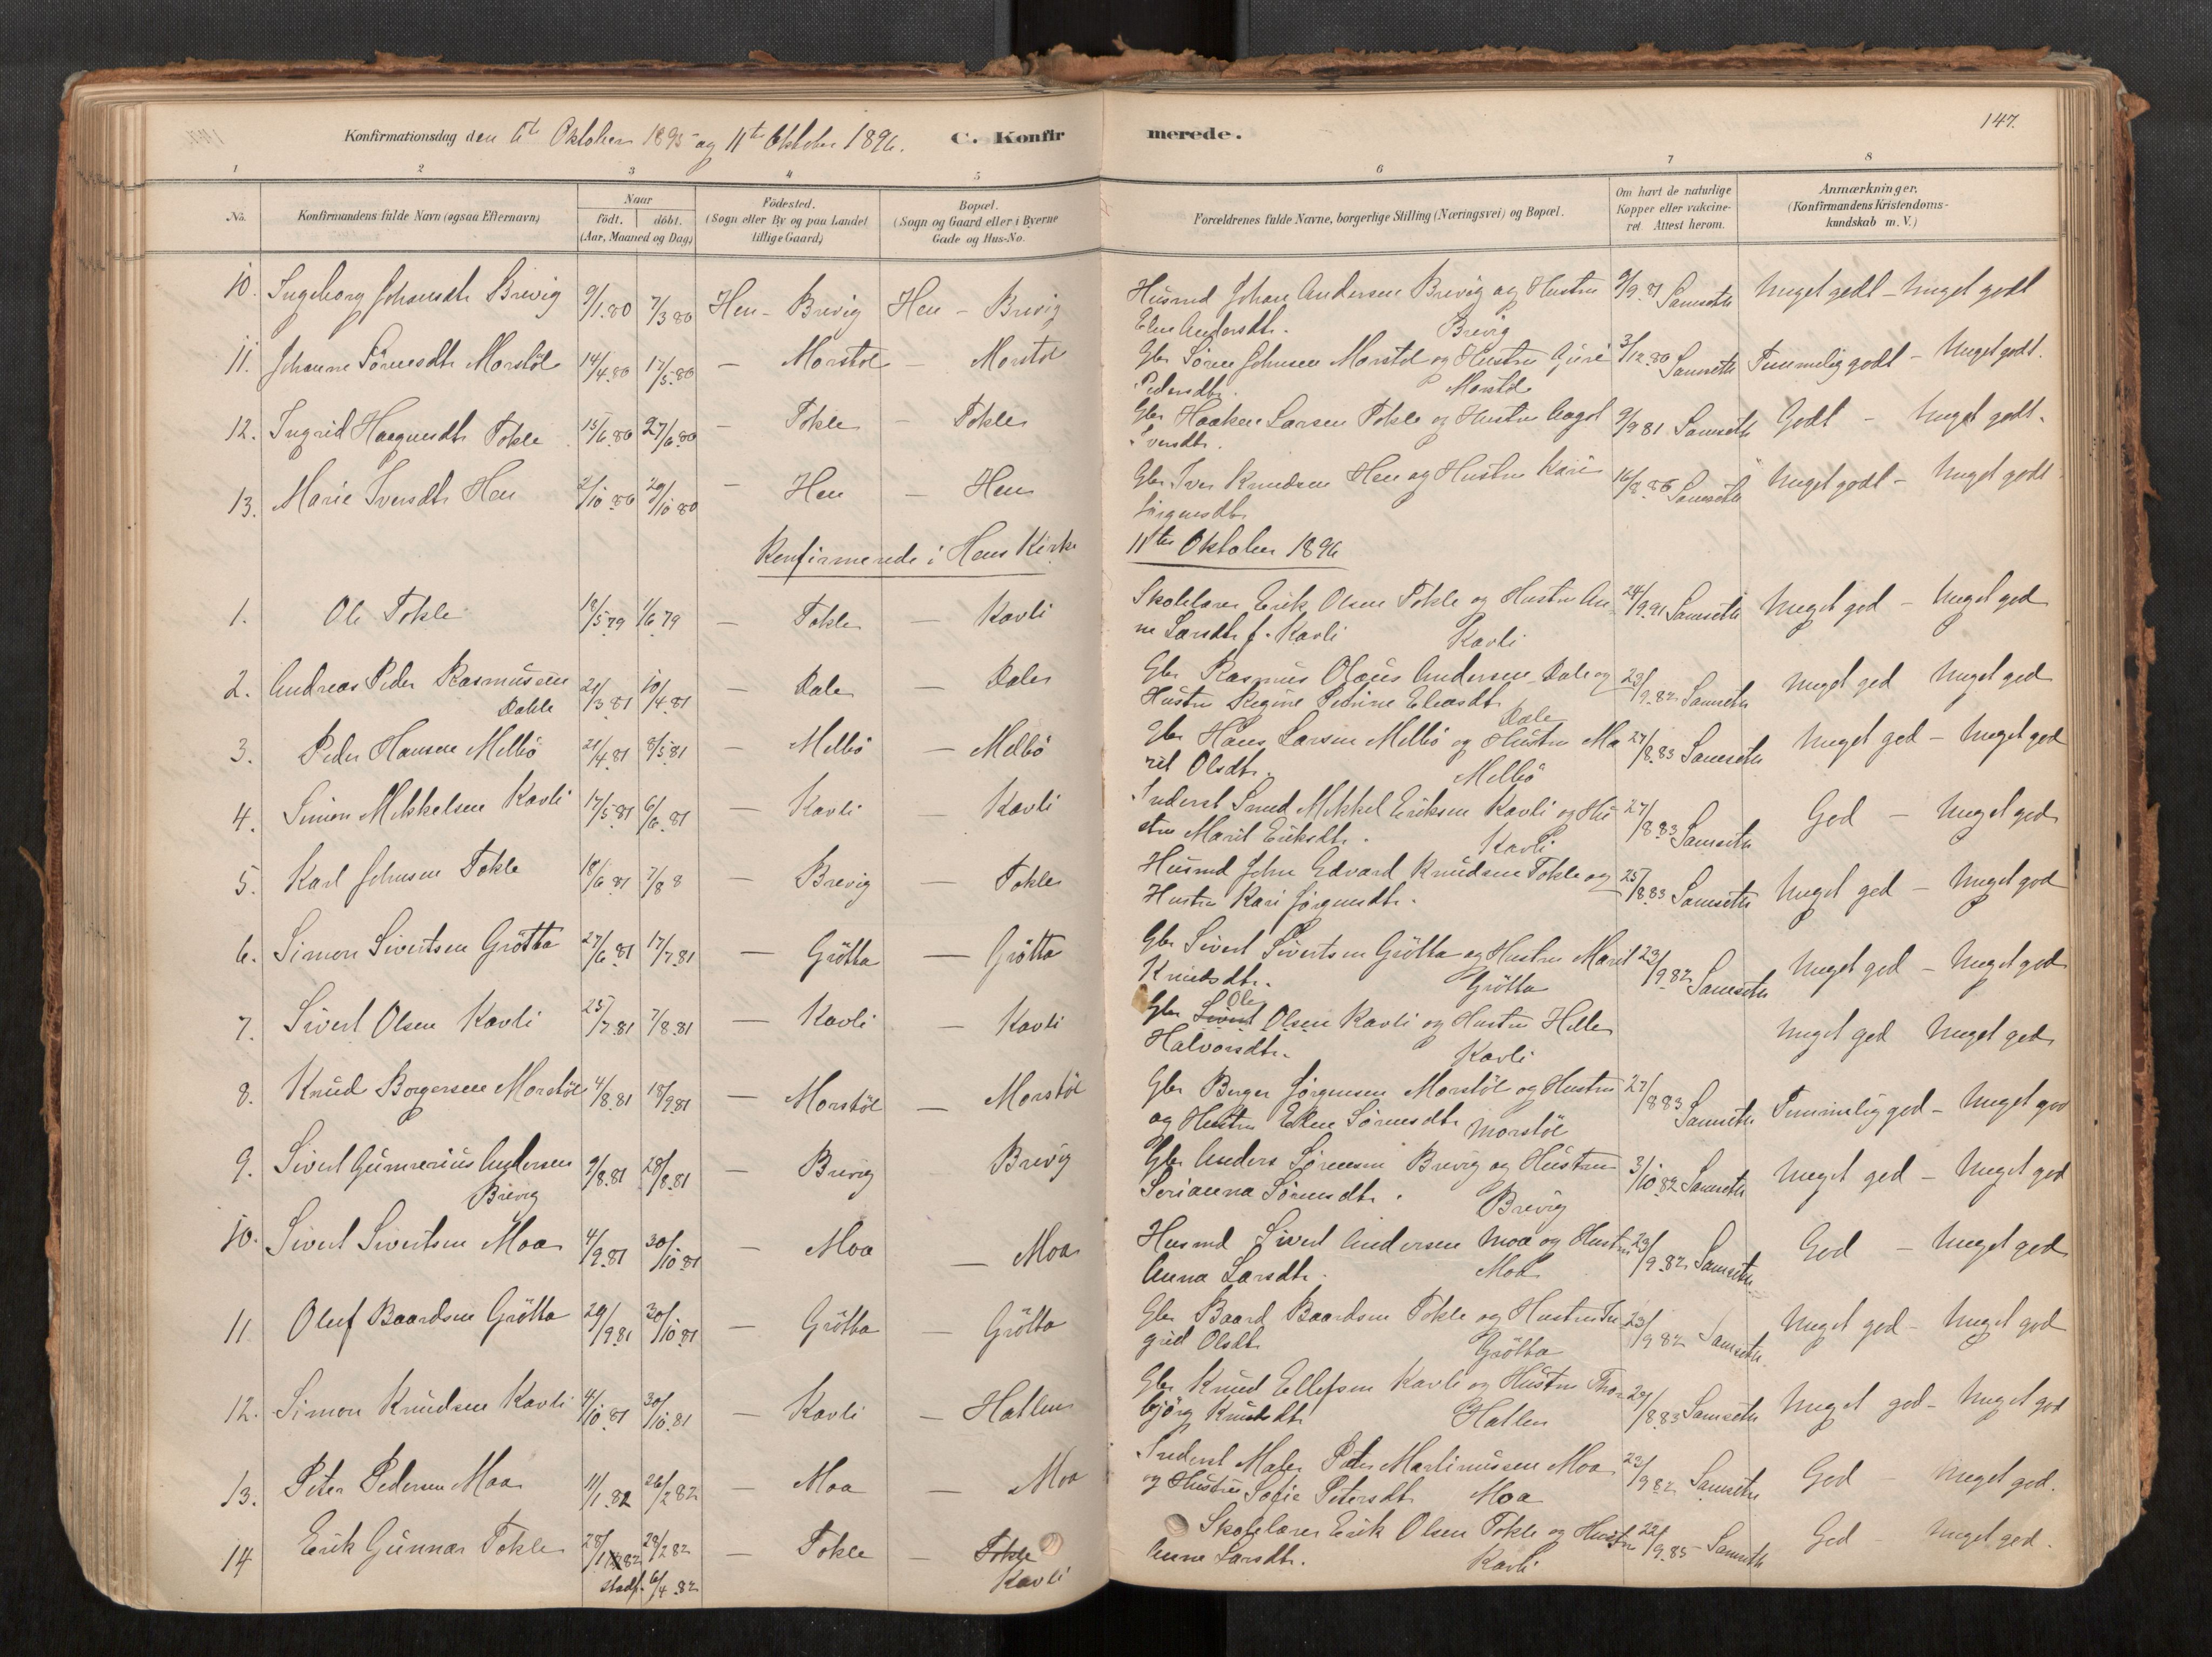 147.
Konfirmationsdag den 6te Oktober 1895 og 11te Oktober 1896. C. Konfirmerede.
1 2 3 4 5 6 7 8
No. Konfirmandens fulde Navn (ogsaa Efternavn) Naar født. døbt. (Aar, Maaned og Dag) Fødested. (Sogn eller By og paa Landet tillige Gaard) Bopæl. (Sogn og Gaard eller i Byerne Gade og Hus-No. Forældrenes fulde Navne, borgerlige Stilling (Næringsvei) og Bopæl. Om havt de naturlige Kopper eller vakcineret Attest herom. Anmærkninger. (Konfirmandens Kristendomskundskab m. V.)
10. Ingeborg Johansdtr Brevig 9/1.80 7/3 80 Hen - Brevig Hen - Brevig Husmd Johan Andersen Brevig og Hustru 9/9.81 Samseth Meget godt - Meget godt
Elen Andersdtr. Brevig
11. Johanne Sörensdtr Morstöl 14/4.80 17/5.80 — Morstöl — Morstöl Gbr Sören Johnsen Morstöl og Hustru Guri 3/12.80 Samseth Temmelig godt - Meget godt.
Pedersdtr. Morstöl
12. Ingrid Haagensdtr Tokle 15/6.80 27/6.80 — Tokle — Tokle Gbr Haaken Larsen Tokle og Hustru Aagot 9/9 81 Samseth Godt - Meget godt.
Iversdtr.
13. Marie Iversdtr Hen 2/10 80 20/10 80 — Hen — Hen Gbr Iver Knudsen Hen og Hustru Kari 16/8.86 Samseth Meget godt - Meget godt
Jörgensdtr
Konfirmerede i Hens Kirke 11te Oktober 1896
1. Ole Tokle 18/5 79 1/6 79 — Tokle — Kavli Skolelærer Erik Olsen Tokle og Hustru An- 24/9.91 Samseth Meget god - Meget god
ne Larsdtr f. Kavli Kavli
2. Andreas Peder Rasmussen 21/3 81 10/4 81 — Dale — Dale Gbr Rasmus Olaus Andersen Dale og 23/9.82 Samseth Meget god Meget god
Dahle Hustru Regine Petrine Eliasdtr Dale
3. Peder Hansen Melbö 21/4 81 8/5 81 — Melbö — Melbö Gbr Hans Larsen Melbö og Hustru Ma 27/8.83 Samseth Meget god - Meget god
rit Olsdtr. Melbö
4. Simon Mikkelsen Kavli 17/5 81 6/6.81 — Kavli — Kavli Inderst Smed Mikkel Eriksen Kavli og Hu 27/8 83 Samseth God - Meget god
stru Marit Eriksdtr. Kavli
5. Karl Johnsen Tokle 18/6 81 7/8 8 — Brevig — Tokle Husmd John Edvard Knudsen Tokle og 25/8.83 Samseth Meget god - Meget god
Hustru Kari Jörgensdtr.
6. Simon Sivertsen Grötta 27/6 81 17/7.81 — Grötta — Grötta Gbr Sivert Sivertsen Grötta og Hustru Marit 23/9.82 Samseth Meget god - Meget god
Knutsdtr. Grötta
7. Sivert Olsen Kavli 25/7.81 7/8.81 — Kavli — Kavli Gbr Sivert Ole Olsen Kavli og Hustru Helle Meget god Meget god
Halvorsdtr. Kavli
8. Knud Borgersen Morstöl 4/8.81 18/9 81 — Morstöl — Morstöl Gbr Borger Jörgensen Morstöl og Hustru 27/8 83 Samseth Temmelig god - Meget god
og Hustru Elen Sörensdtr Morstöl
9. Sivert Gunnerius Andersen 9/8.81 28/8.81 — Brevig Brevig Gbr Anders Sörensen Brevig og Hustru 3/10 82 Samseth Meget god - Meget god
Brevig Serianna Sörensdtr. Brevig
10. Sivert Sivertsen Moa 4/9.81 30/10 81 — Moa — Moa Husmd Sivert Andersen Moa og Hustru 23/9.82 Samseth God - Meget god
Anna Larsdtr. Moa
11 Oluf Baardsen Grötta 29/9.81 30/10 81 — Grötta — Grötta Gbr Baard Baardsen Tokle og Hustru In 23/9 82 Samseth Meget god - Meget god
grid Olsdtr Grötta
12. Simon Knudsen Kavli 4/10 81 30/10.81 — Kavli — Hatlen Gbr Knud Ellefsen Kavli og Hustru Thor 27/8 83 Samseth Meget god - Meget god
björg Knutsdtr Hatlen
13. Peter Pedersen Moa 11/1.82 26/2 82 — Moa — Moa Inderst Maler Peter Martinussen Moa 23/9 82 Samseth God Meget god.
og Hustru Sofie Petersdtr Moa
14 Erik Gunnar Tokle 28/1 82 28/2 82 — Tokle — Tokle Skolelærer Erik Olsen Tokle og Hustru 22/9.85 Samseth God - Meget god.
stadf. 6/4.82 Kavli Anne Larsdtr. Kavli